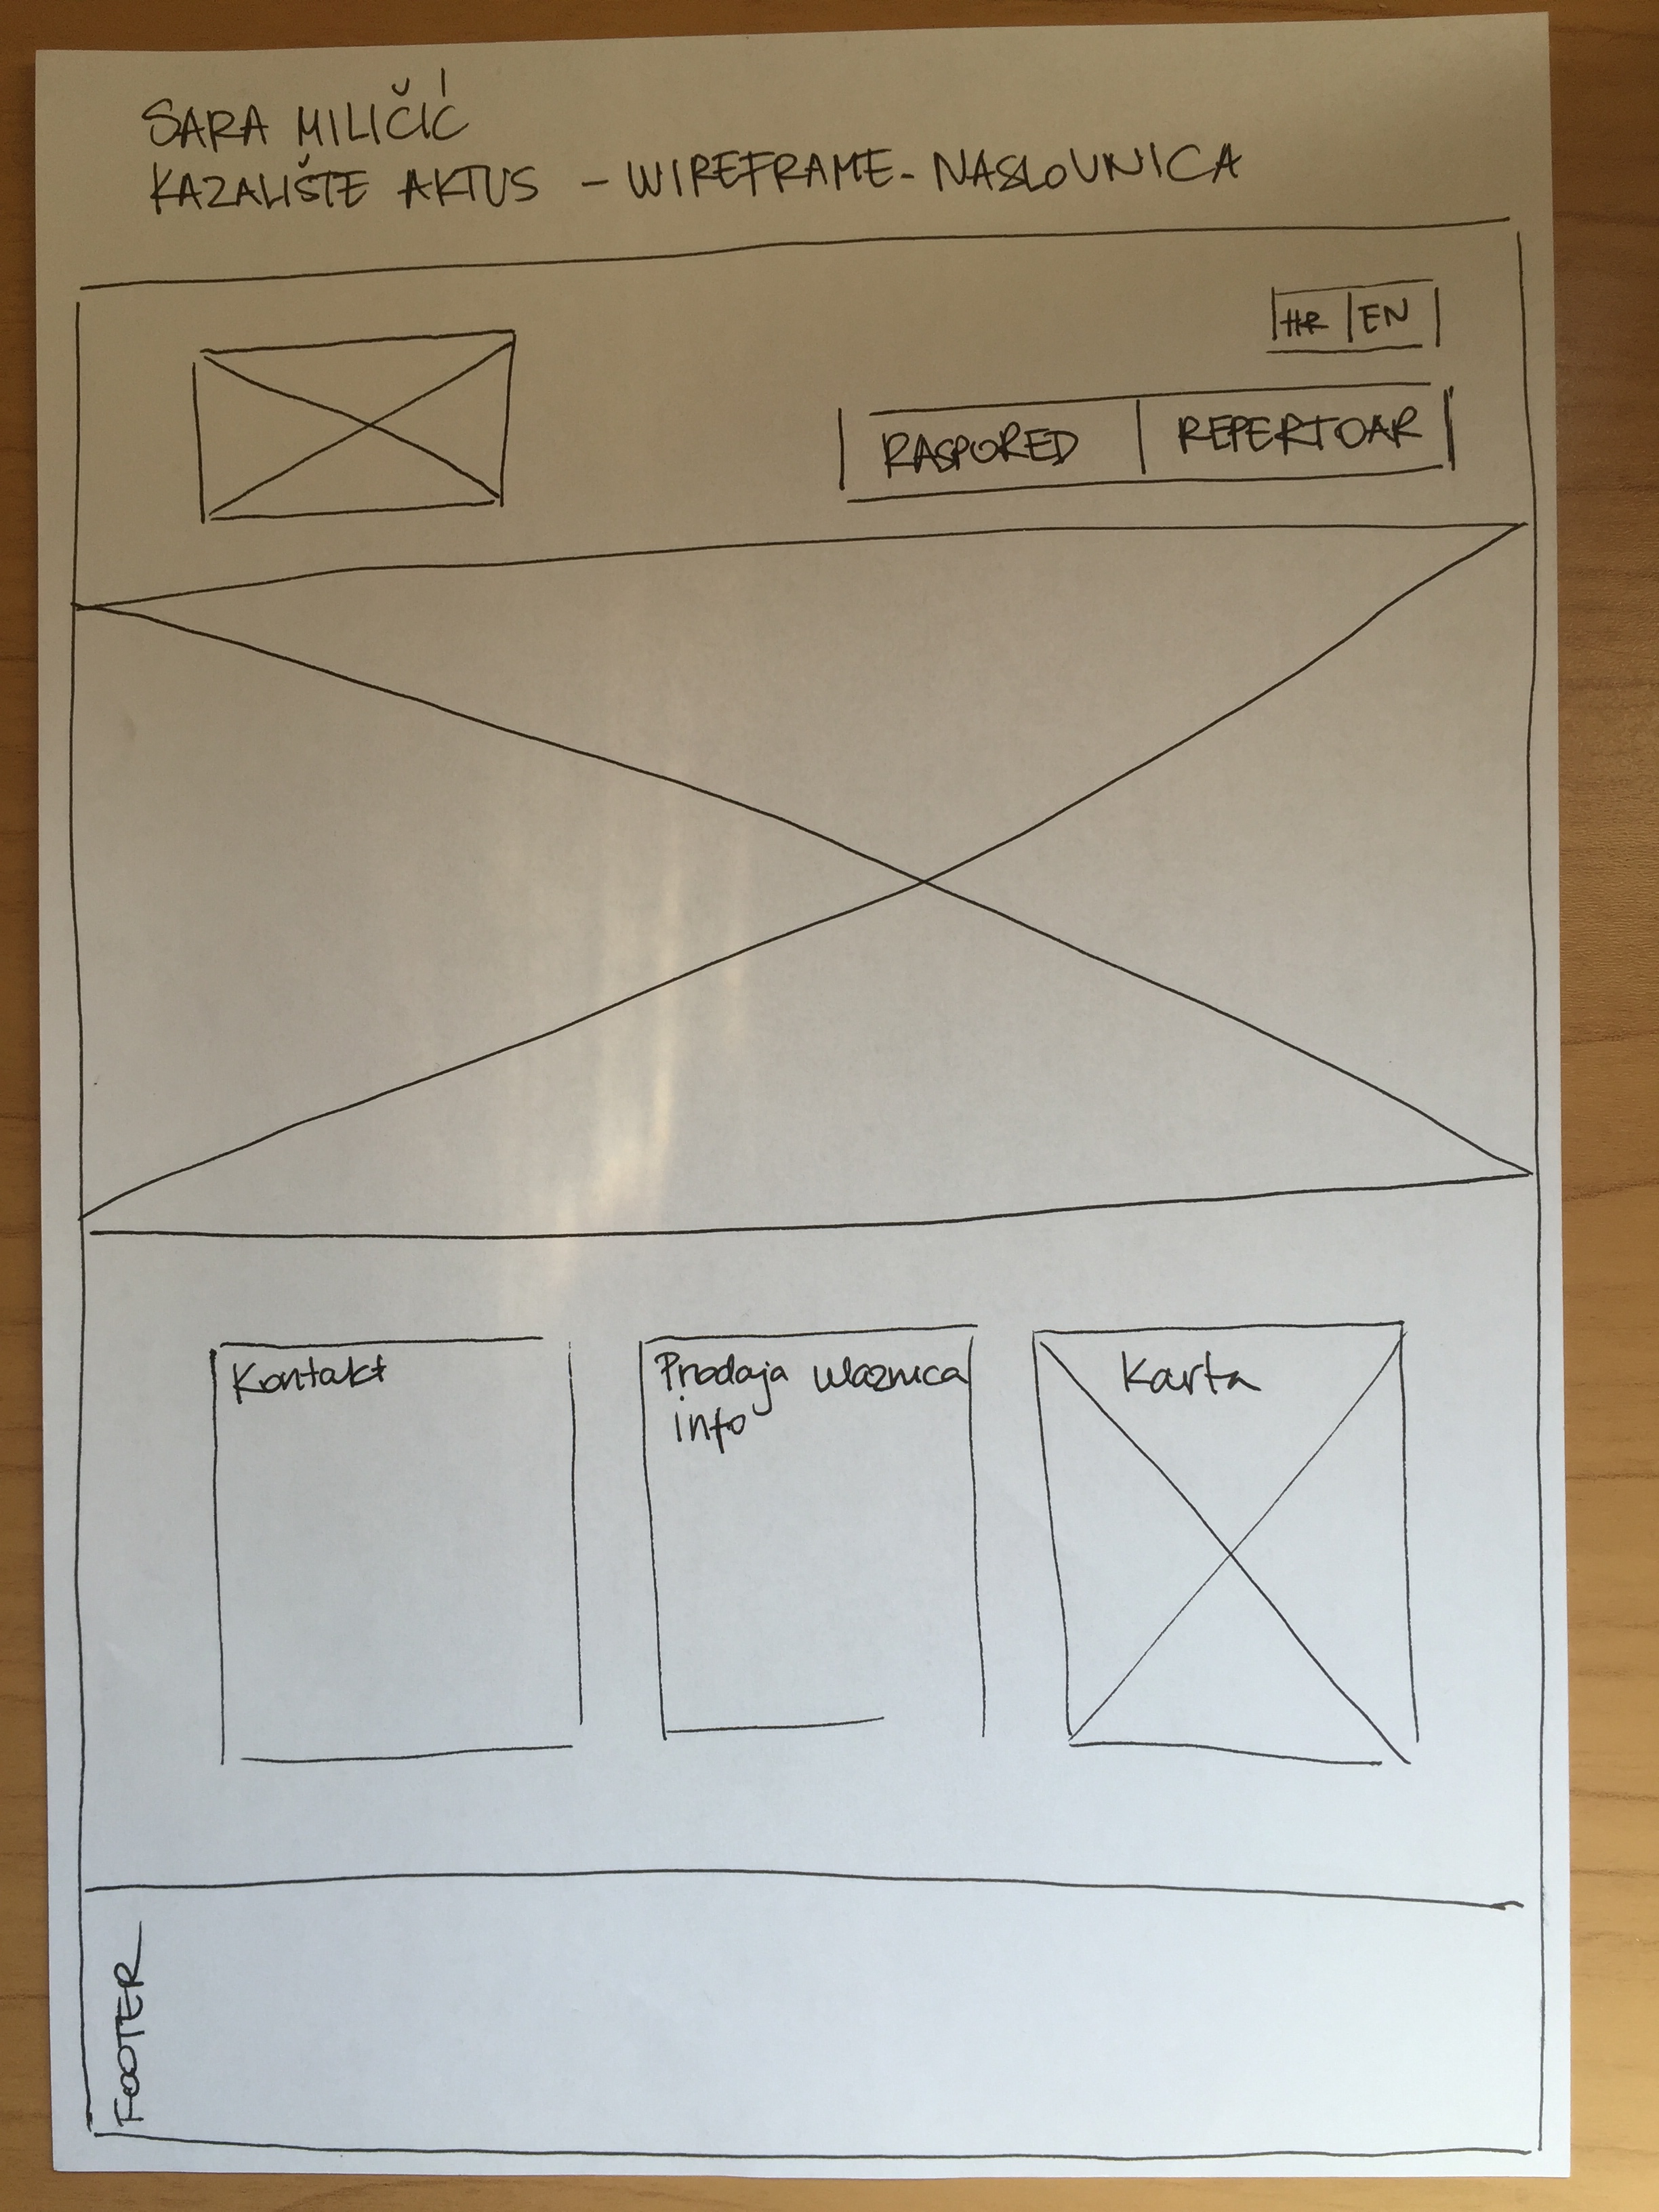 SARA MILIČIĆ
KAZALIŠTE AKTUS - WIREFRAME - NASLOVNICA
HR | EN
RASPORED | REPERTOAR
Kontakt
Prodaja ulaznica
info
Karta
FOOTER